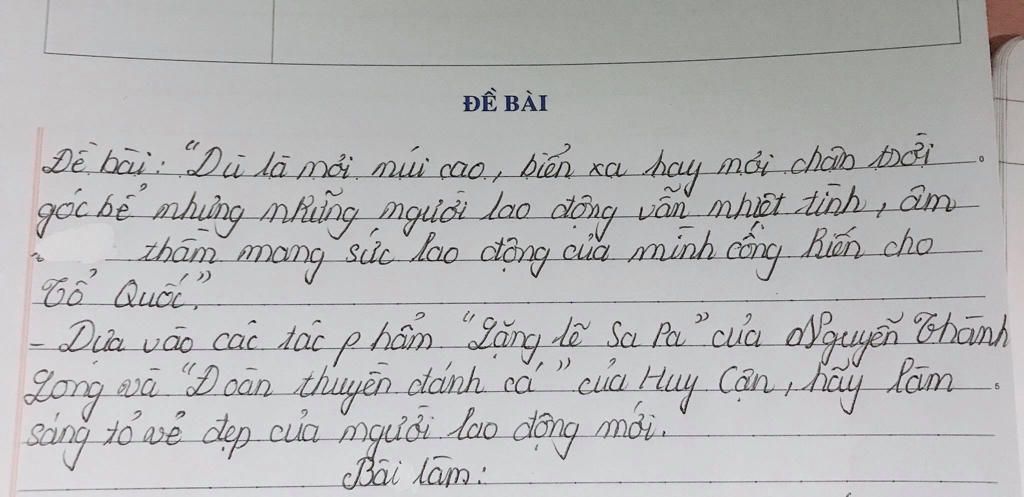 ĐỀ BÀI
Đề bài: "Dù là nơi núi cao, biển xa hay nơi chân trời
góc bể nhưng những người lao động vẫn nhiệt tình, âm
thầm mang sức lao động của mình cống hiến cho
Tổ Quốc."
- Dựa vào các tác phẩm "Lặng lẽ Sa Pa" của Nguyễn Thành
Long và "Đoàn thuyền đánh cá" của Huy Cận, hãy làm
sáng tỏ vẻ đẹp của người lao động mới.
Bài làm: